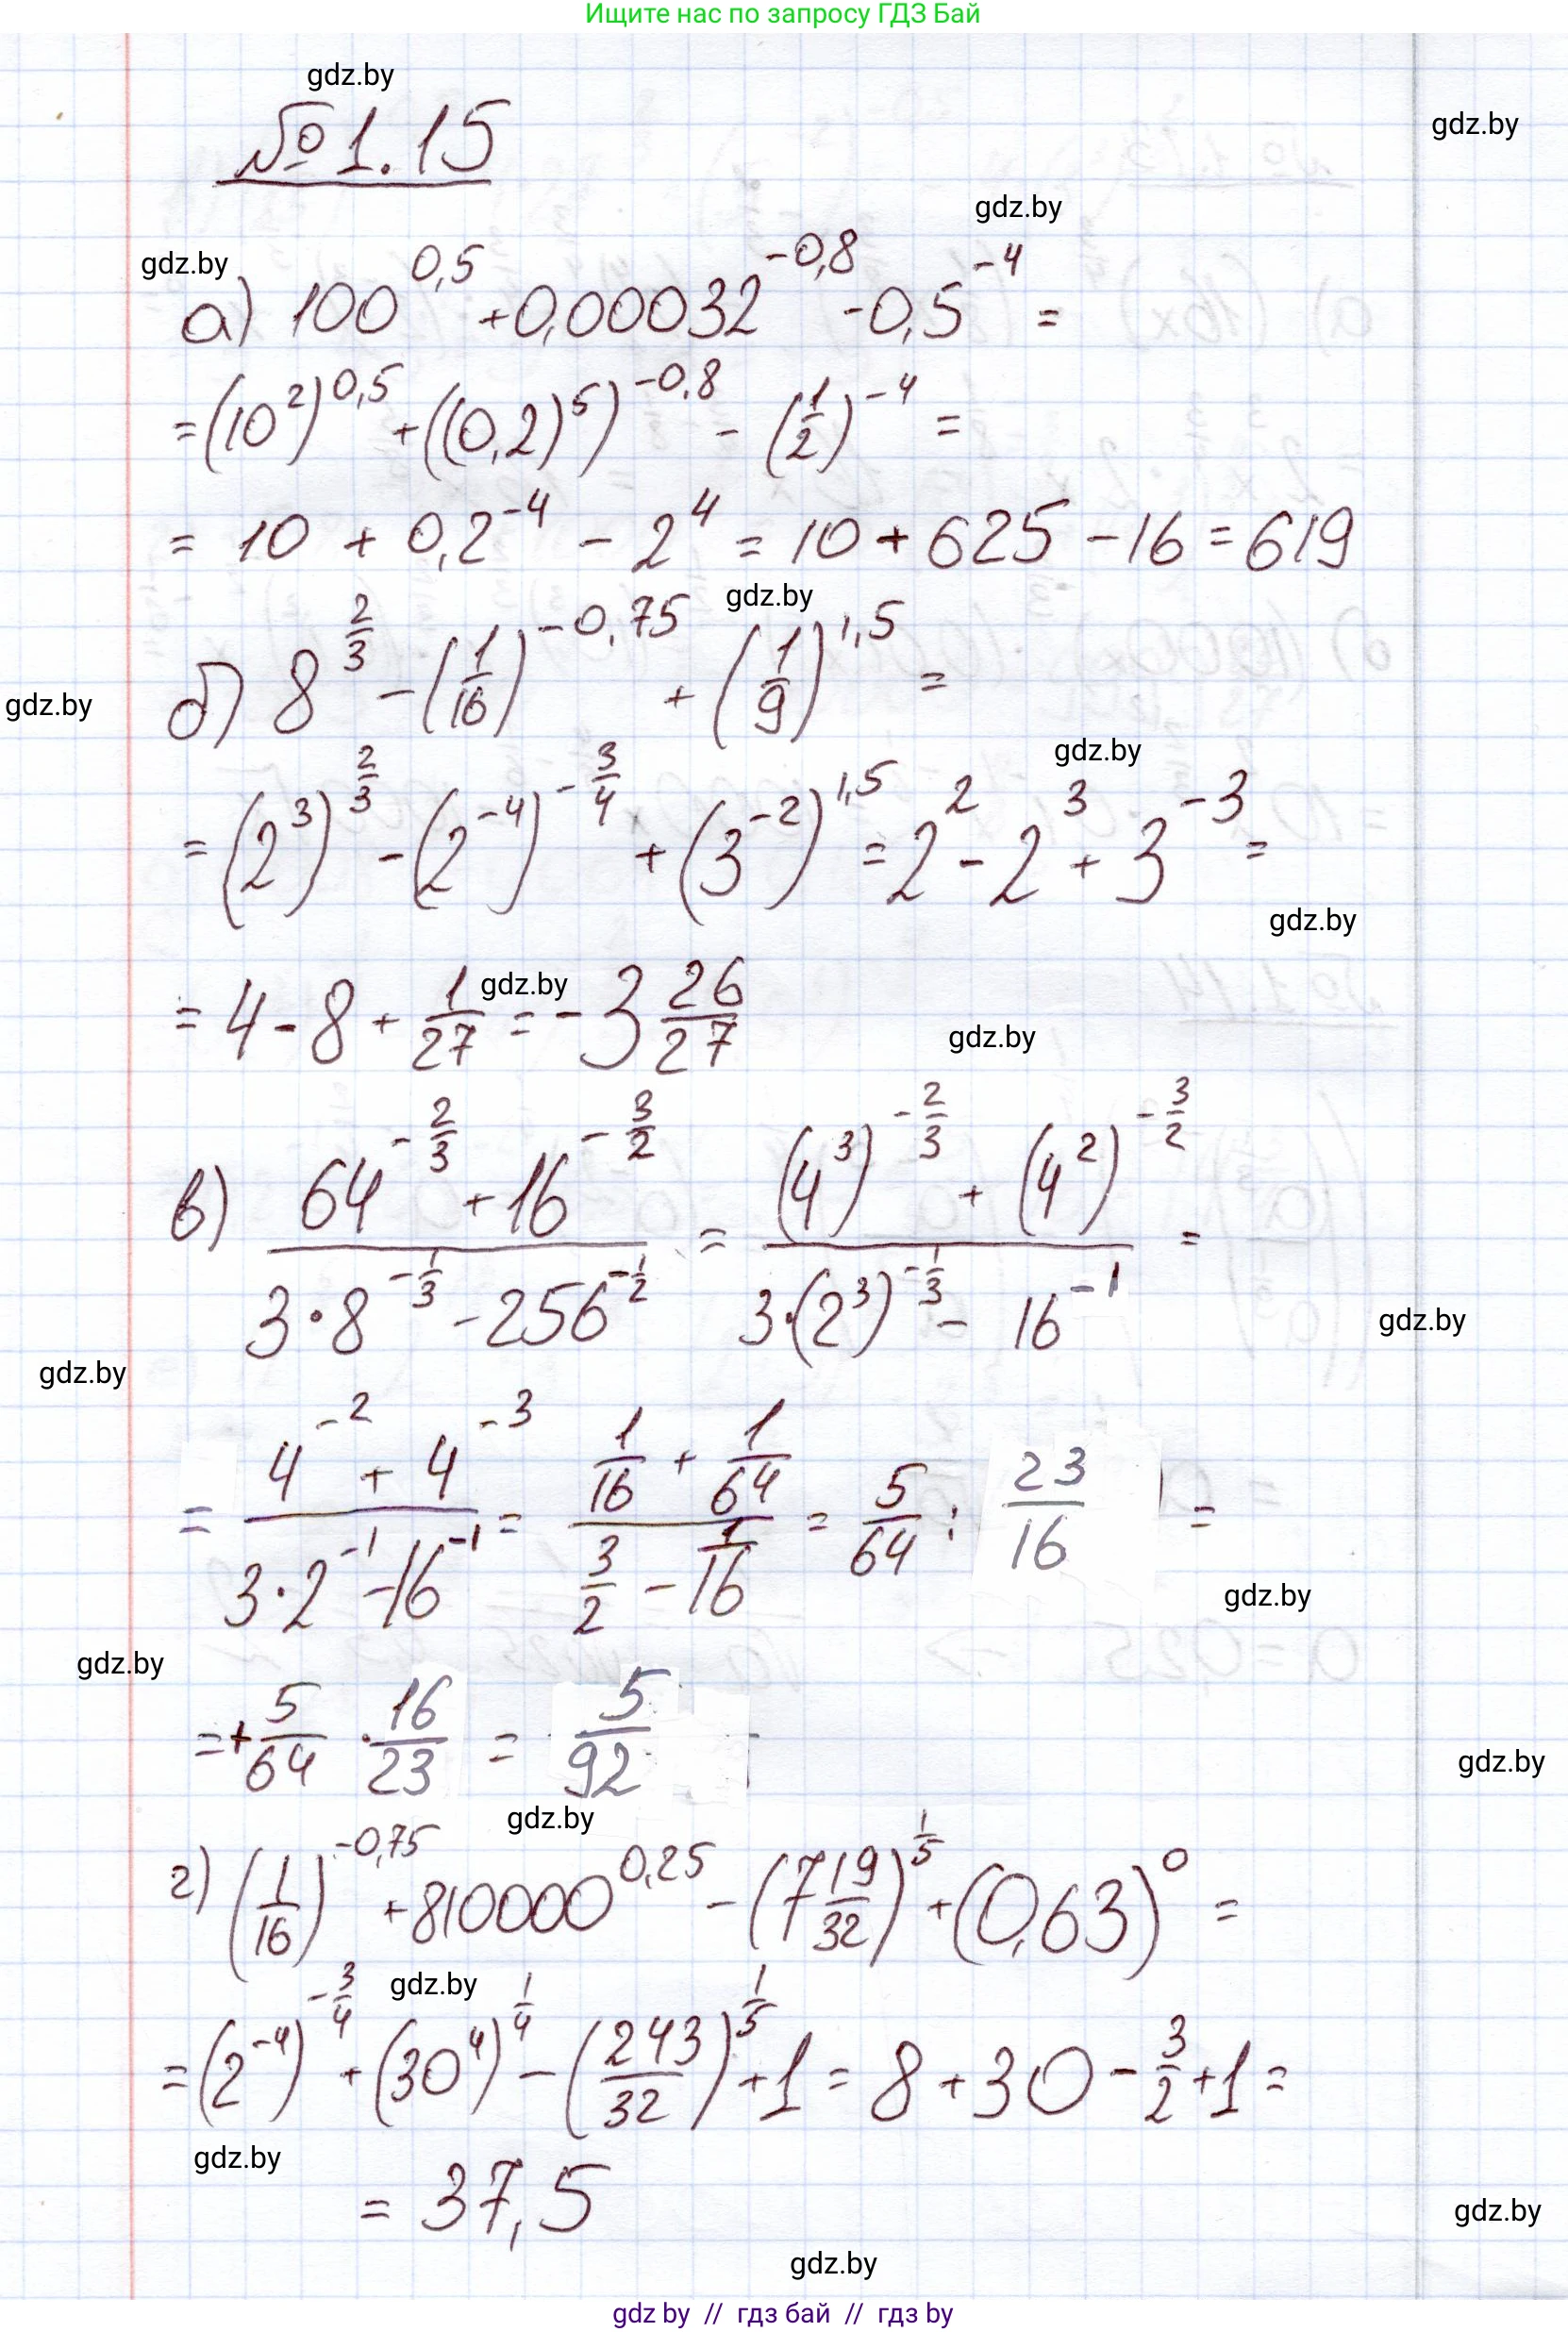 Ищите нас по запросу ГДЗ Бай
gdz.by
№ 1.15
gdz.by
gdz.by
gdz.by
а) 100^0,5 + 0,00032^-0,8 - 0,5^-4 =
= (10^2)^0,5 + ((0,2)^5)^-0,8 - (1/2)^-4 =
= 10 + 0,2^-4 - 2^4 = 10 + 625 - 16 = 619
gdz.by
б) 8^2/3 - (1/16)^-0,75 + (1/9)^1,5 =
gdz.by
gdz.by
= (2^3)^2/3 - (2^-4)^-3/4 + (3^-2)^1,5 = 2^2 - 2^3 + 3^-3 =
gdz.by
= 4 - 8 + 1/27 = -3 26/27
gdz.by
gdz.by
в) (64^-2/3 + 16^-3/2) / (3·8^-1/3 - 256^-1/2) = ((4^3)^-2/3 + (4^2)^-3/2) / (3·(2^3)^-1/3 - 16^-1) =
gdz.by
gdz.by
= (4^-2 + 4^-3) / (3·2^-1 - 16^-1) = (1/16 + 1/64) / (3/2 - 1/16) = 5/64 : 23/16 =
gdz.by
gdz.by
= + 5/64 · 16/23 = 5/92
gdz.by
gdz.by
г) (1/16)^-0,75 + 810000^0,25 - (7 19/32)^1/5 + (0,63)^0 =
gdz.by
= (2^-4)^-3/4 + (30^4)^1/4 - (243/32)^1/5 + 1 = 8 + 30 - 3/2 + 1 =
gdz.by
= 37,5
gdz.by
gdz.by
gdz by // гдз бай // гдз by